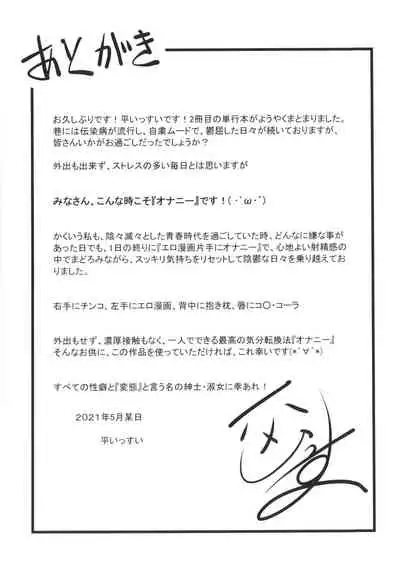 あとがき
お久しぶりです！平いっすいです！2冊目の単行本がようやくまとまりました。
巷には伝染病が流行し、自粛ムードで、鬱屈した日々が続いておりますが、
皆さんいかがお過ごしだったでしょうか？
外出も出来ず、ストレスの多い毎日とは思いますが
みなさん、こんな時こそ『オナニー』です！（･`ω･´）
かくいう私も、陰々滅々とした青春時代を過ごしていた時、どんなに嫌な事が
あった日でも、1日の終りに『エロ漫画片手にオナニー』で、心地よい射精感の
中でまどろみながら、スッキリ気持ちをリセットして陰鬱な日々を乗り越えてお
りました。
右手にチンコ、左手にエロ漫画、背中に抱き枕、唇にコ〇・コーラ
外出もせず、濃厚接触もなく、一人でできる最高の気分転換法『オナニー』
そんなお供に、この作品を使っていただければ、これ幸いです(*ﾟ∀ﾟ*)
すべての性癖と『変態』と言う名の紳士・淑女に幸あれ！
2021年5月某日
平いっすい